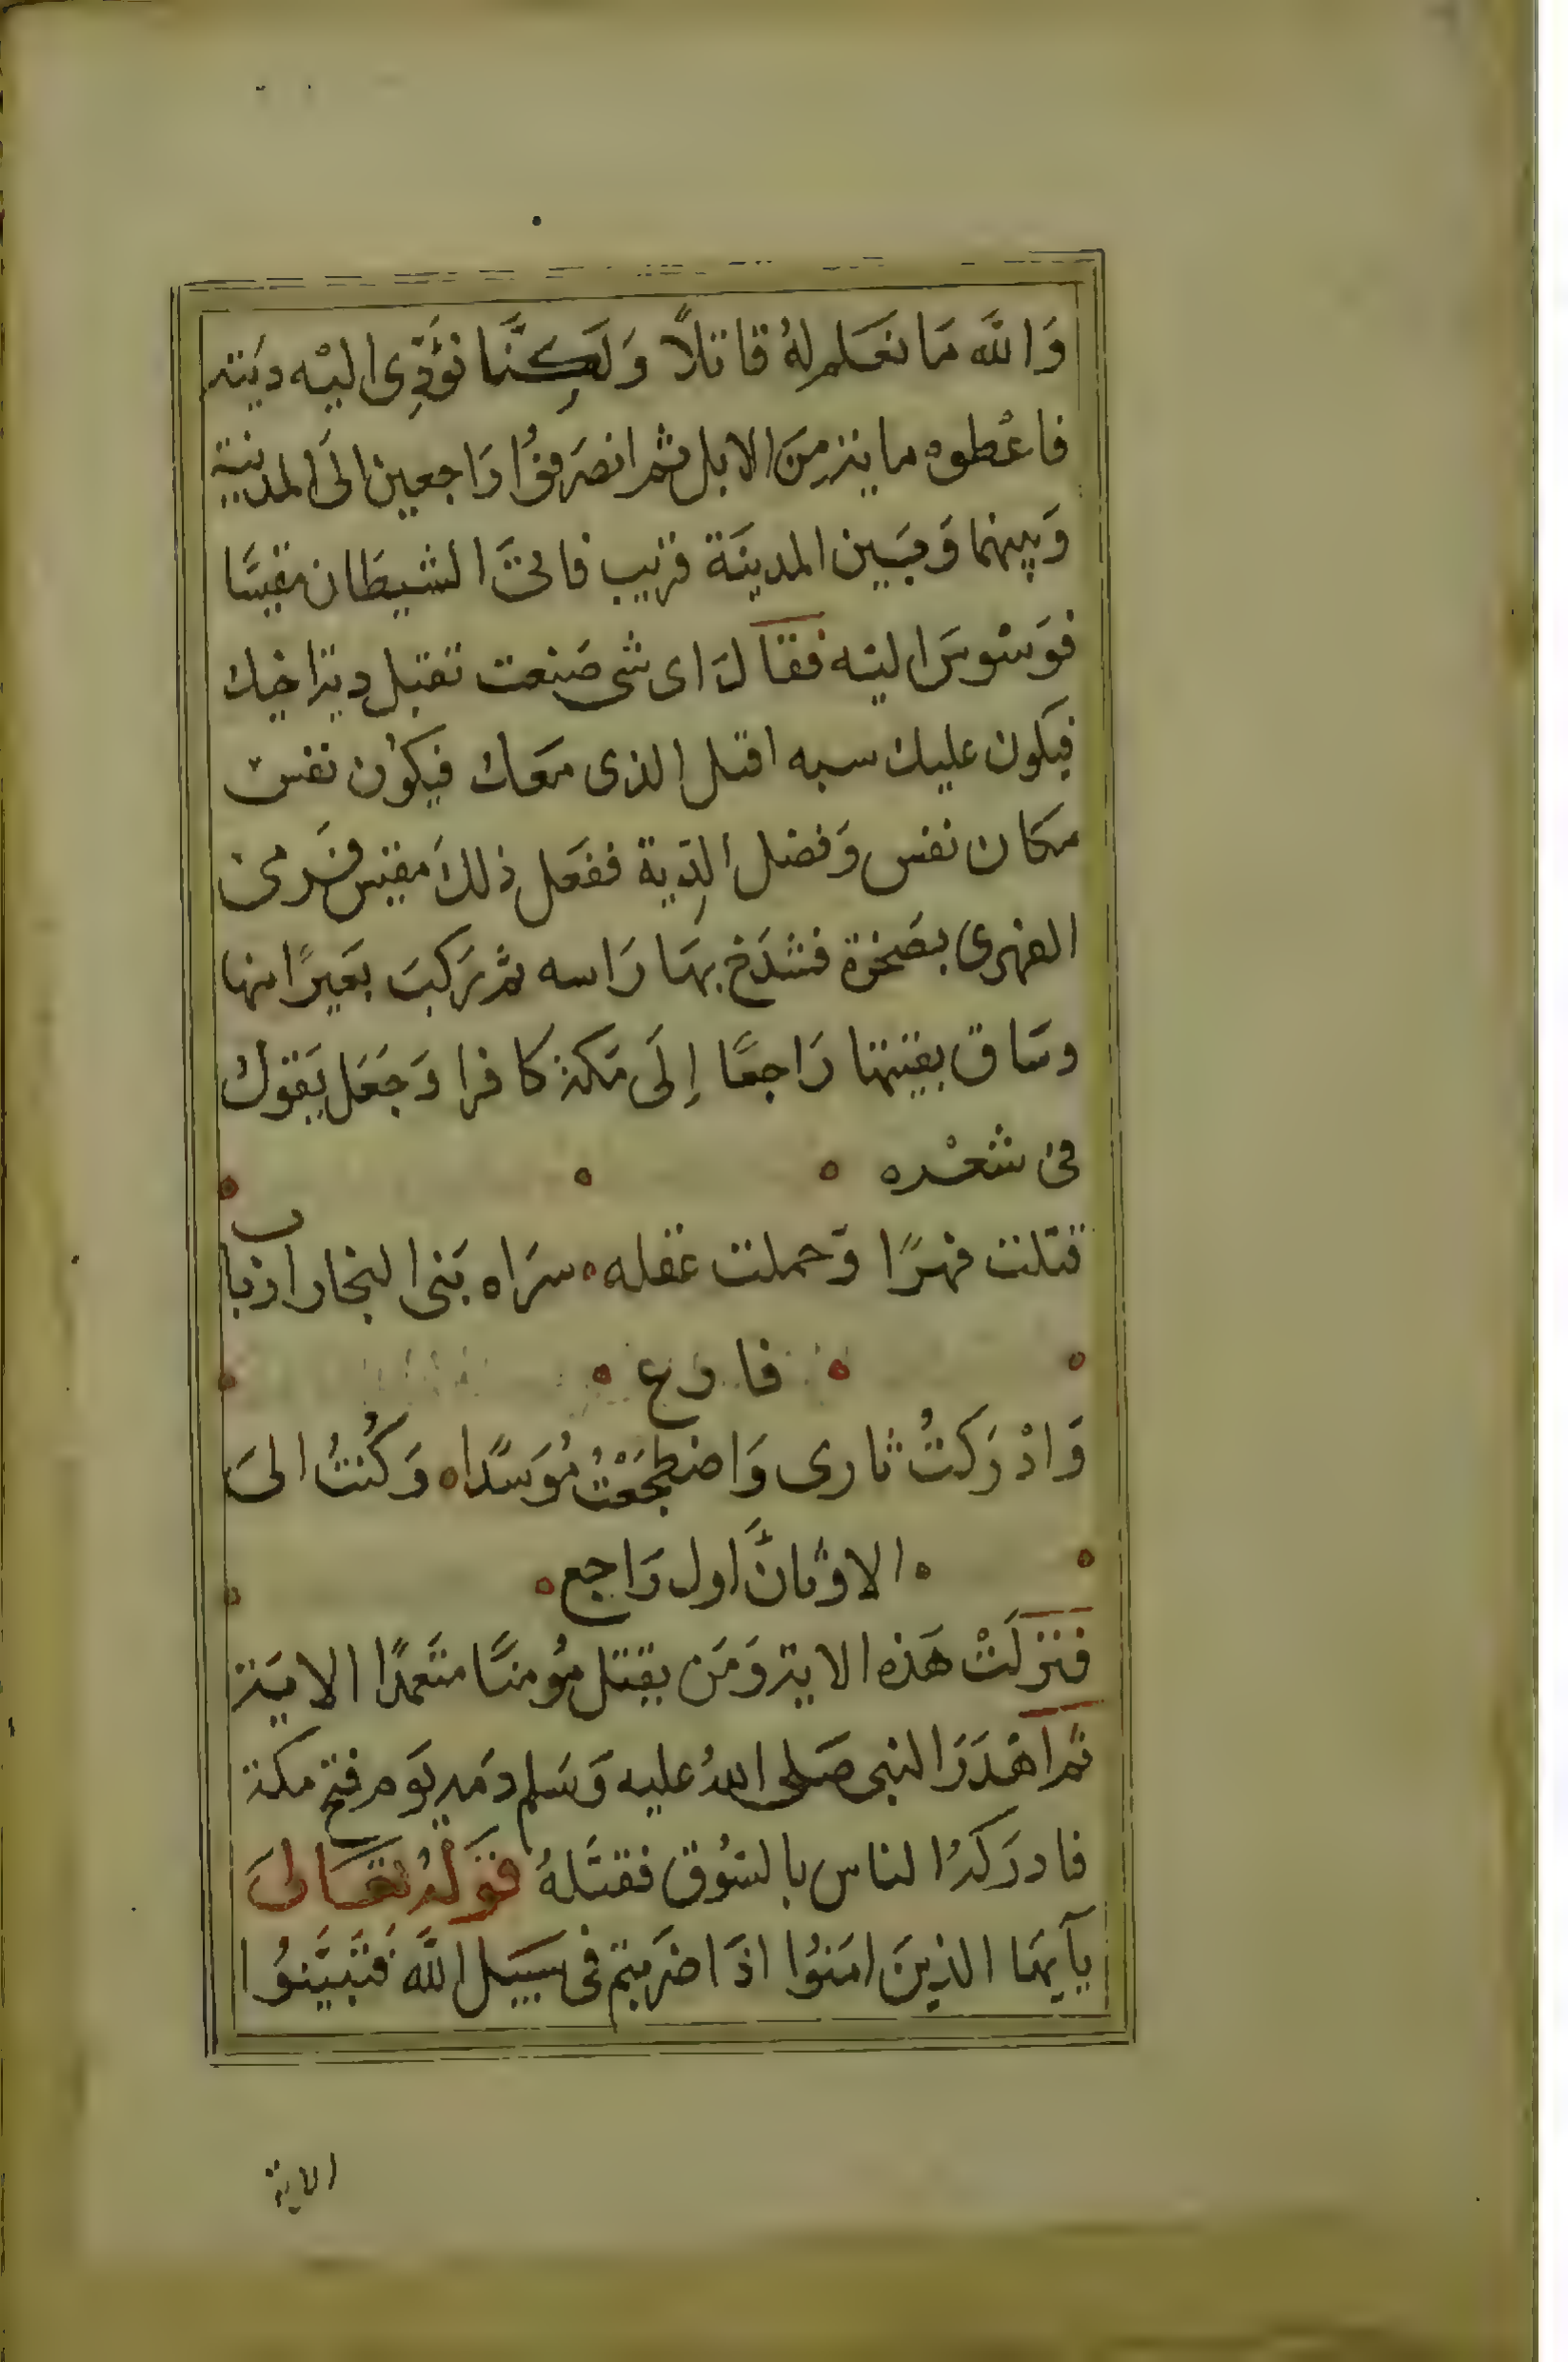 وَاللَّه مَا نَعَلم لهُ قاتلاً وَلَكِنَّا نؤَدِّى اليْه ديَته
فاعْطوه ماية مِنَ الابل ثم انصَرفوُا رَاجعين الَى المدينة
وَبينهما وَبَيين المدينَة قريب فاتىَ الشيطَان مقيسًا
فوَسْوسَ اليه فقَالَ اى شى صَنعت تقبل دية اخيك
فيكون عليك سبه اقتل الذى مَعك فيكوُن نفس
مكان نفس وَفضل الدِّية ففعَل ذلكَ مقيس فَرمى
الفهرى بصَخرة فشدَخ بهَا رَاسه ثم رَكبَ بعَيرًا منها
وسَاق بقيتها رَاجعًا إلَى مَكة كافرا وَجعَل يَقول
فى شعْره
قتلت فهرًا وَحملت عقله سرَاه بَنى النجار ارباب
فارع
وَادْرَكتُ ثارى وَاضطجَعْتُ مُوَسَّدًا وَكُنتُ الىَ
الاوْثانَ اول رَاجع
فنزلَتْ هَذه الاية وَمَن يقتل مؤُمنًا متَعمدًا الايَة
ثم اهْدَرَ النبى صَلى اللهُ عليه وَسَلم دمَه يوَم فتح مكة
فادرَكهُ الناس بالسُوق فقتَلهُ قوَلهُ تعَالىَ
يآيهَا الذينَ امَنوُا اذَا ضرَبتم فى سَبيل اللَّه فَتَبَيَّنوُا
الاية